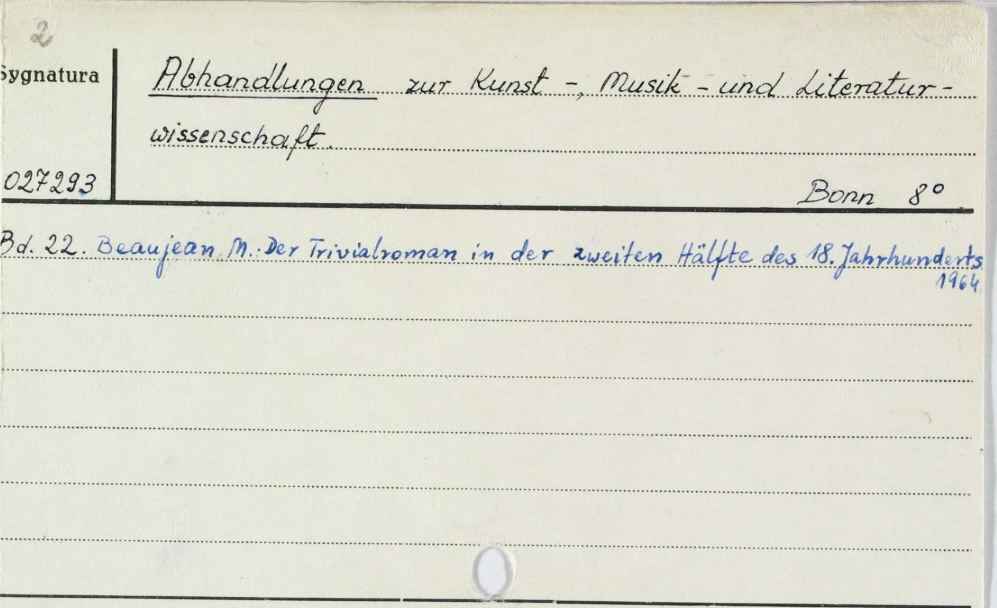 2
Sygnatura
Abhandlungen zur Kunst -, Musik - und Literatur -
wissenschaft.
027293
Bonn 8°
Bd. 22. Beaujean, M.: Der Trivialroman in der zweiten Hälfte des 18. Jahrhunderts
1964.